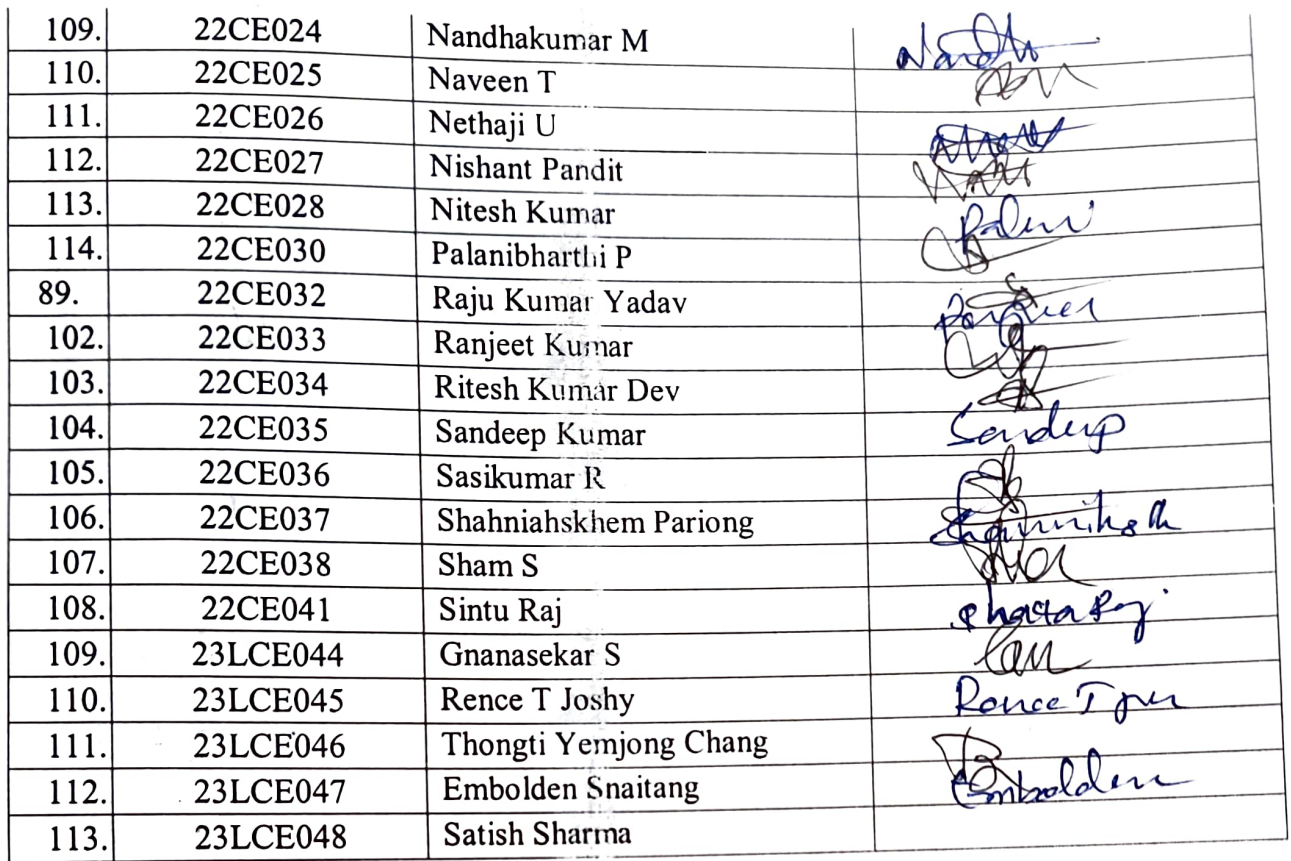 109. 22CE024 Nandhakumar M
110. 22CE025 Naveen T
111. 22CE026 Nethaji U
112. 22CE027 Nishant Pandit
113. 22CE028 Nitesh Kumar
114. 22CE030 Palanibharthi P
89. 22CE032 Raju Kumar Yadav
102. 22CE033 Ranjeet Kumar
103. 22CE034 Ritesh Kumar Dev
104. 22CE035 Sandeep Kumar Sandeep
105. 22CE036 Sasikumar R
106. 22CE037 Shahniahskhem Pariong
107. 22CE038 Sham S
108. 22CE041 Sintu Raj
109. 23LCE044 Gnanasekar S
110. 23LCE045 Rence T Joshy Rence T
111. 23LCE046 Thongti Yemjong Chang
112. 23LCE047 Embolden Snaitang Embolden
113. 23LCE048 Satish Sharma